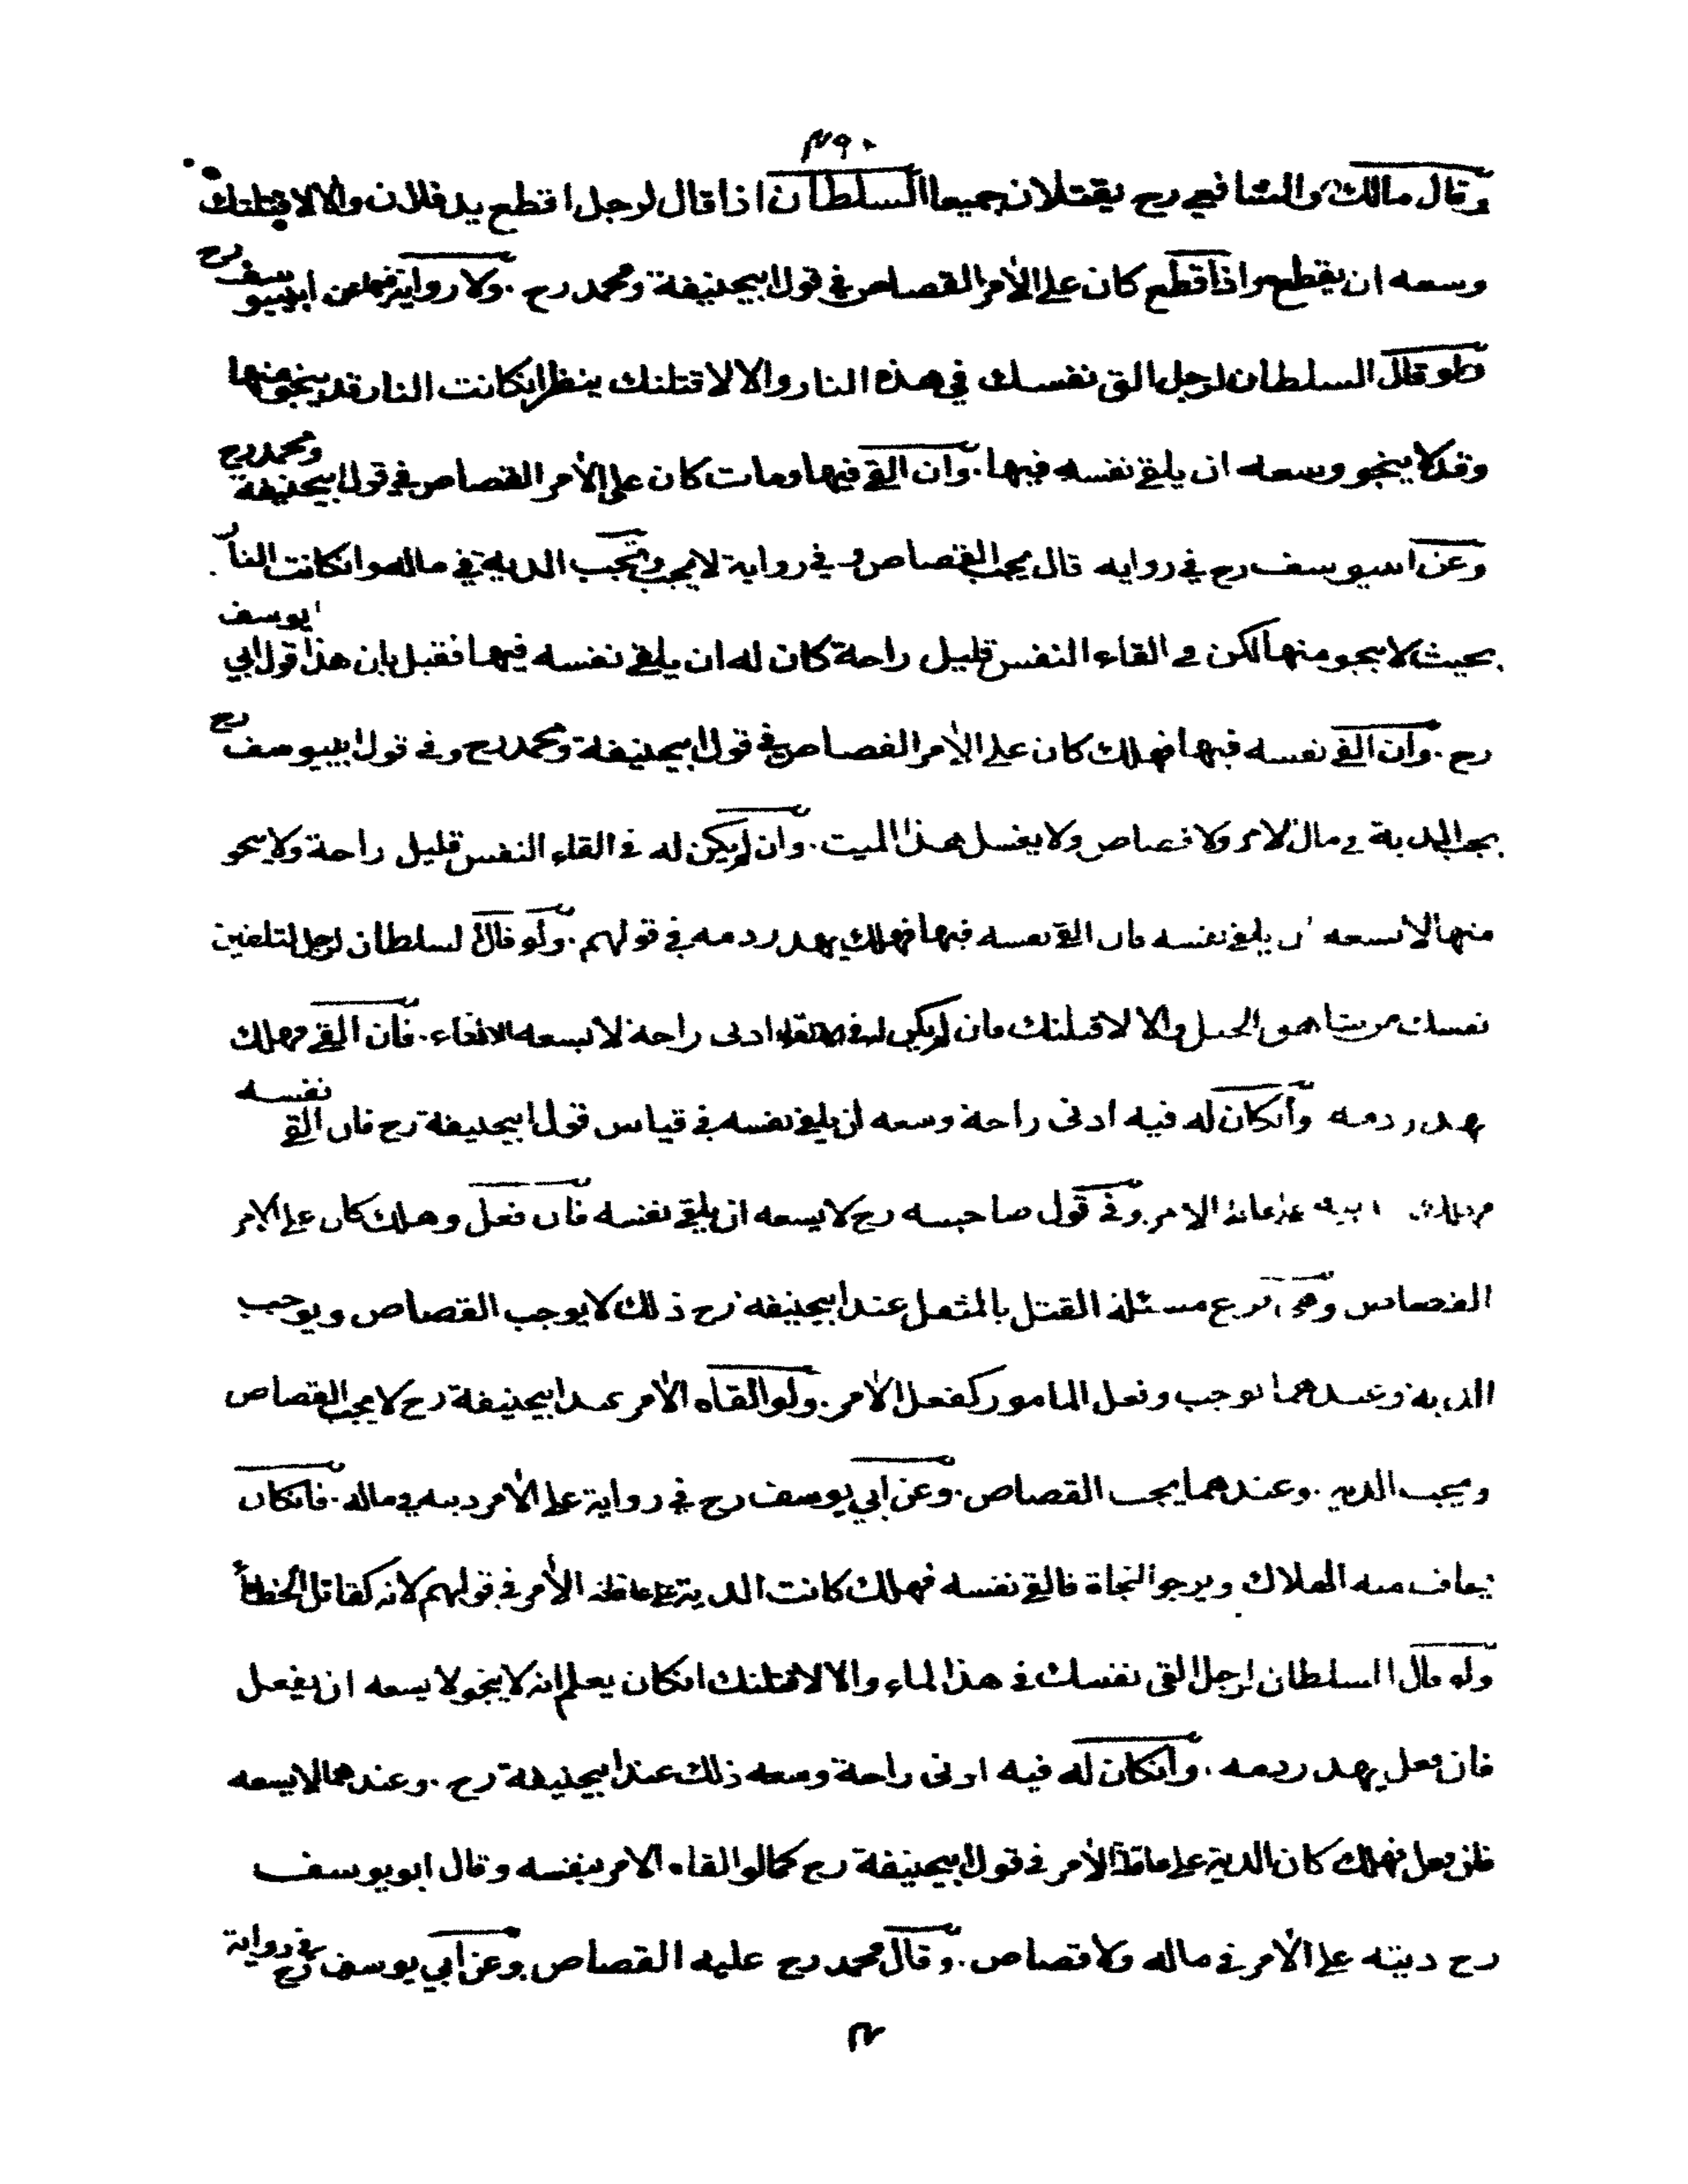 ٤٩٠
وقال مالك والشافعي رح يقتلان جميعا السلطان اذا قال لرجل اقطع يد فلان والا لاقتلنك
وسعه ان يقطع واذا قطع كان على الأمر القصاص في قول ابيحنيفة ومحمد رح . ولا رواية فيها عن ابييوسف رح
ولو قال السلطان لرجل الق نفسك في هذه النار والا لاقتلنك ينظر انكانت النار قد ينجو منها
وقد لا ينجو وسعه ان يلقي نفسه فيها . وان القي فيها ومات كان على الأمر القصاص في قول ابيحنيفة ومحمد رح
وعن ابييوسف رح في روايه قال يجب القصاص و في رواية لا يجب وتجب الدية في ماله وانكانت النار
بحيث لا ينجو منها لكن في القاء النفس قليل راحة كان له ان يلقي نفسه فيها فقيل بان هذا قول ابي يوسف
رح . وان القي نفسه فيها فهلك كان على الأمر القصاص في قول ابيحنيفة ومحمد رح وفي قول ابييوسف رح
يجب الدية في مال الامر ولا قصاص ولا يغسل هذا الميت . وان لم يكن له في القاء النفس قليل راحة ولا ينجو
منها لا يسعه ان يلقي نفسه فان القي نفسه فيها فهلك يهدر دمه في قولهم . ولو قال السلطان لرجل لتلقين
نفسك من شاهق الجبل والا لاقتلنك فان لم يكن له في الالقاء ادنى راحة لا يسعه الالقاء . فان القي فهلك
يهدر دمه وانكان له فيه ادنى راحة وسعه ان يلقي نفسه في قياس قول ابيحنيفة رح فان القي نفسه
الامر . وفي قول صاحبيه رح لا يسعه ان يلقي نفسه فان فعل وهلك كان على الامر
القصاص وهي فرع مسئلة القتل بالمثقل عند ابيحنيفه رح ذلك لا يوجب القصاص ويوجب
الدية وعندهما يوجب وفعل المامور كفعل الأمر . ولو القاه الأمر عند ابيحنيفة رح لا يجب القصاص
ويجب الدية . وعندهما يجب القصاص . وعن ابي يوسف رح في رواية على الأمر ديته في ماله . فانكان
يخاف منه الهلاك ويرجو النجاة فالقي نفسه فهلك كانت الدية على عاقلة الأمر في قولهم لانه كقاتل الخطأ
ولو قال السلطان لرجل القي نفسك في هذا الماء والا لاقتلنك انكان يعلم انه لا ينجو لا يسعه ان يفعل
فان فعل يهدر دمه . وانكان له فيه ادنى راحة وسعه ذلك عند ابيحنيفة رح . وعندهما لا يسعه
فان فعل فهلك كان الدية على عاقلة الأمر في قول ابيحنيفة رح كما لو القاه الامر بنفسه وقال ابو يوسف
رح ديته على الأمر في ماله ولا قصاص . وقال محمد رح عليه القصاص وعن ابي يوسف رح في رواية